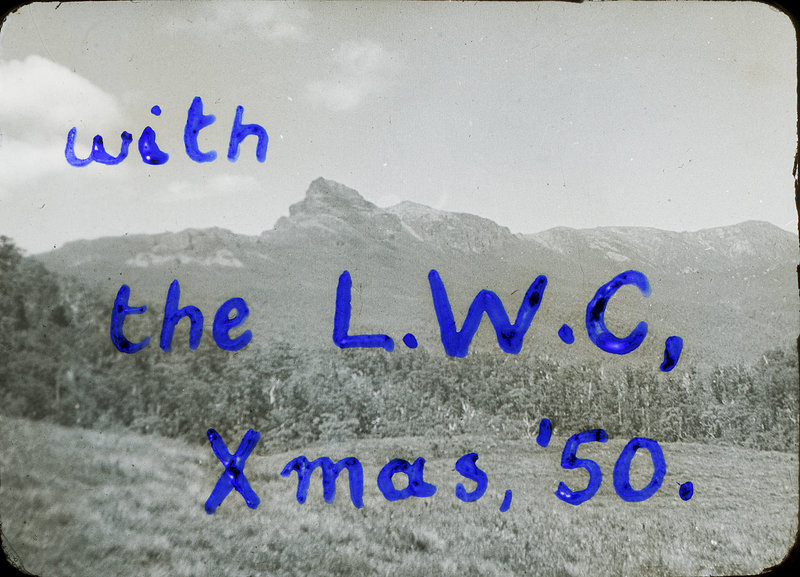 with
the L.W.C,
Xmas, '50.